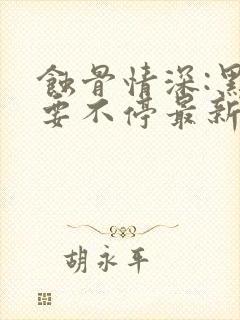 蚀骨情深:黑
要不停最新
胡永平